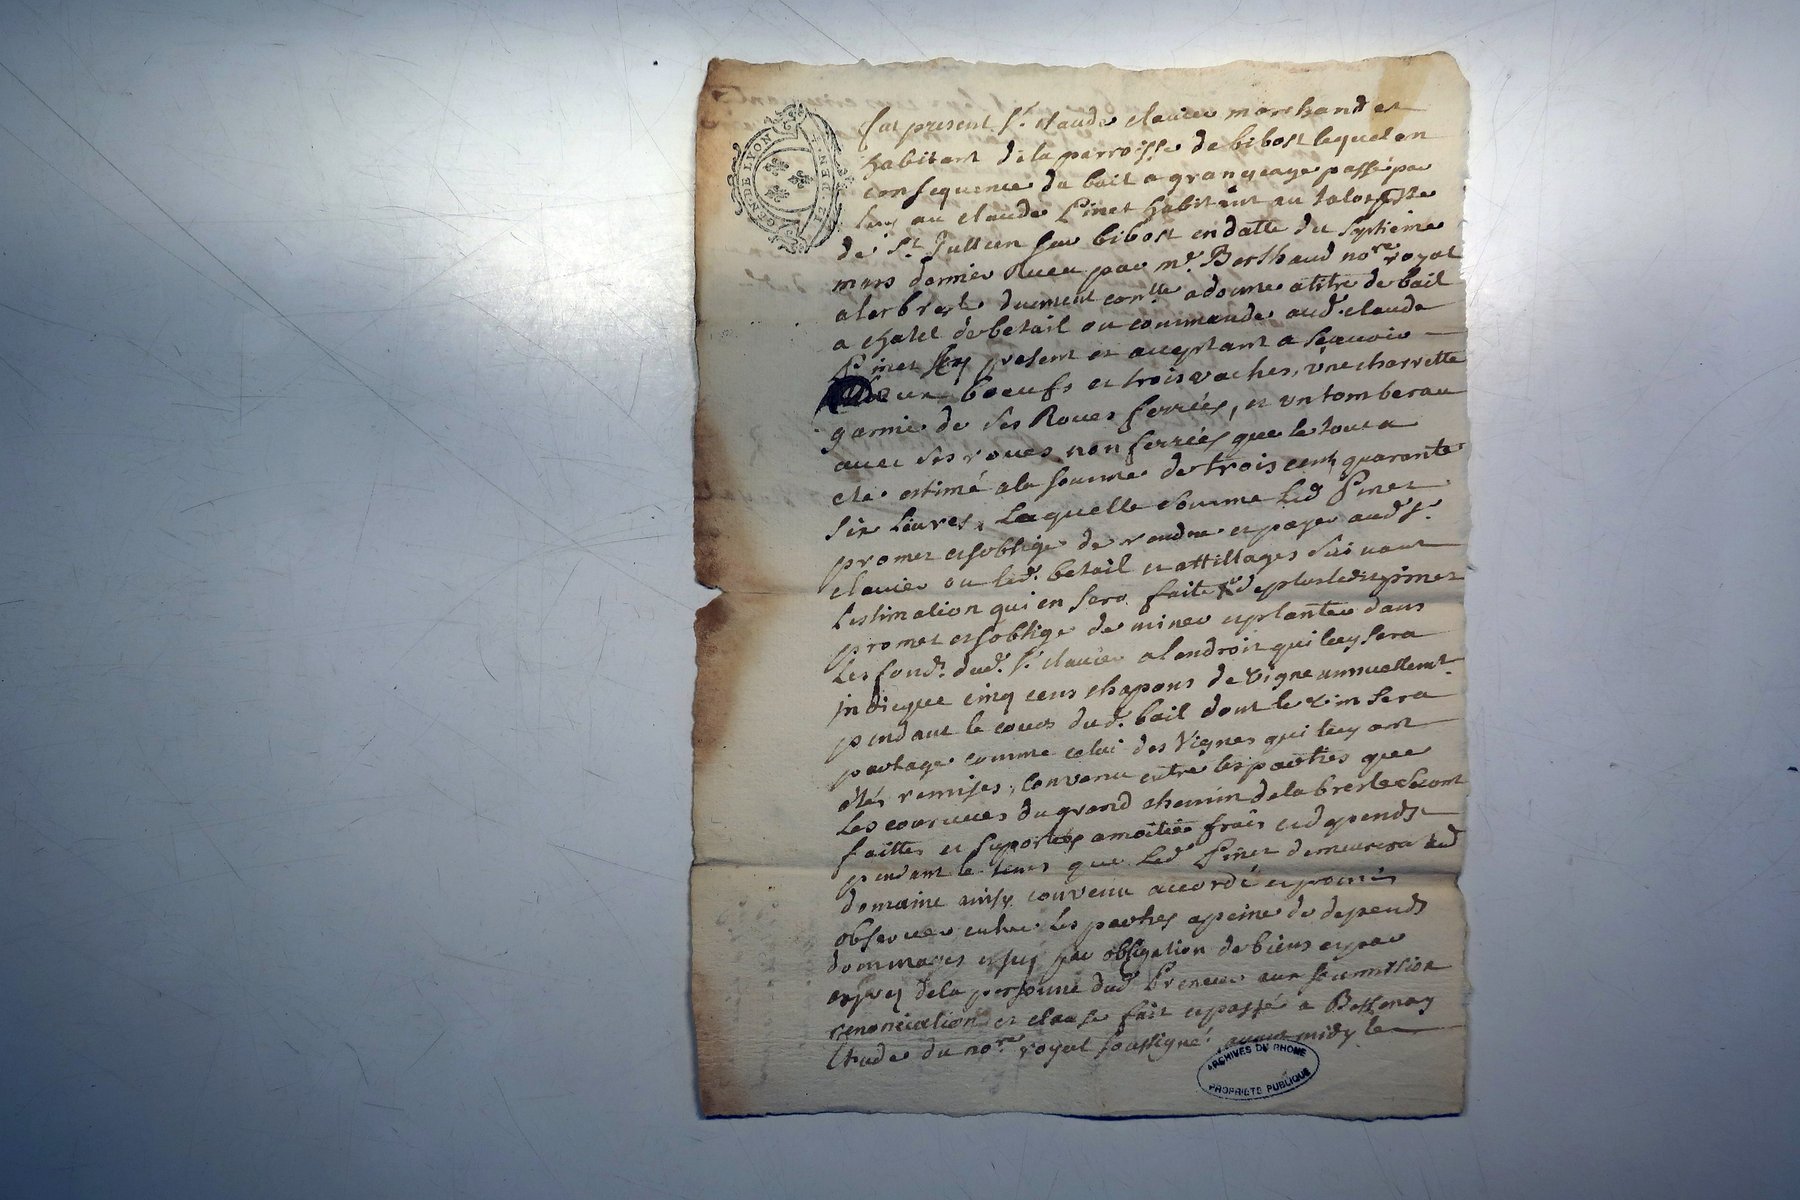 GEN. DE LYON
12 DEN. LE
fut present Sr. claude clavier marchand et
habitant de la parroisse de bibost lequel en
consequence du bail a grangeage passé par
luy au claude Pinet habitant au
de St. Jullien sur bibost en datte du septieme
mars dernier receu par me. Berthaud nore. royal
a larbresle duement conllé a donne a titre de bail
a chatel de betail ou commande aud. claude
Pinet present et acceptant a scavoir
deux boeufs et trois vaches, une charrette
garnie de ses Roues ferrées, et un tombereau
avec ses roues non ferrées que le tout a
ete estimé a la somme de trois cent quarante
six livres, Laquelle somme led Pinet
promet et soblige de rendre et payer aud sr.
clavier ou led. betail et attillages suivant
lestimation qui en sera faite de plus ledit pinet
promet et soblige de miner et planter dans
les fonds. dud. sr. clavier a lendroit qui luy sera
indiqué cinq cens chapons de vigne annuellemt.
pendant le cours dud. bail dont le vin sera
partage comme celui des vignes qui luy ont
étés remises, convenu entre les parties que
les courvues du grand chemin de la bresle seront
faittes et suportés a moitier frais et dependst
pendant le tems que led Pinet demeurera aud
domaine ainsy convenu accordé et promis
observer entre les parties a peine de depends
dommages par obligation de biens et par
de la personne dud Preneur aux soumission
renonciation et clause fait et passé a Bessenay
Etude du nore. royal soussigné avant midy le
ARCHIVES DU RHONE
PROPRIETE PUBLIQUE